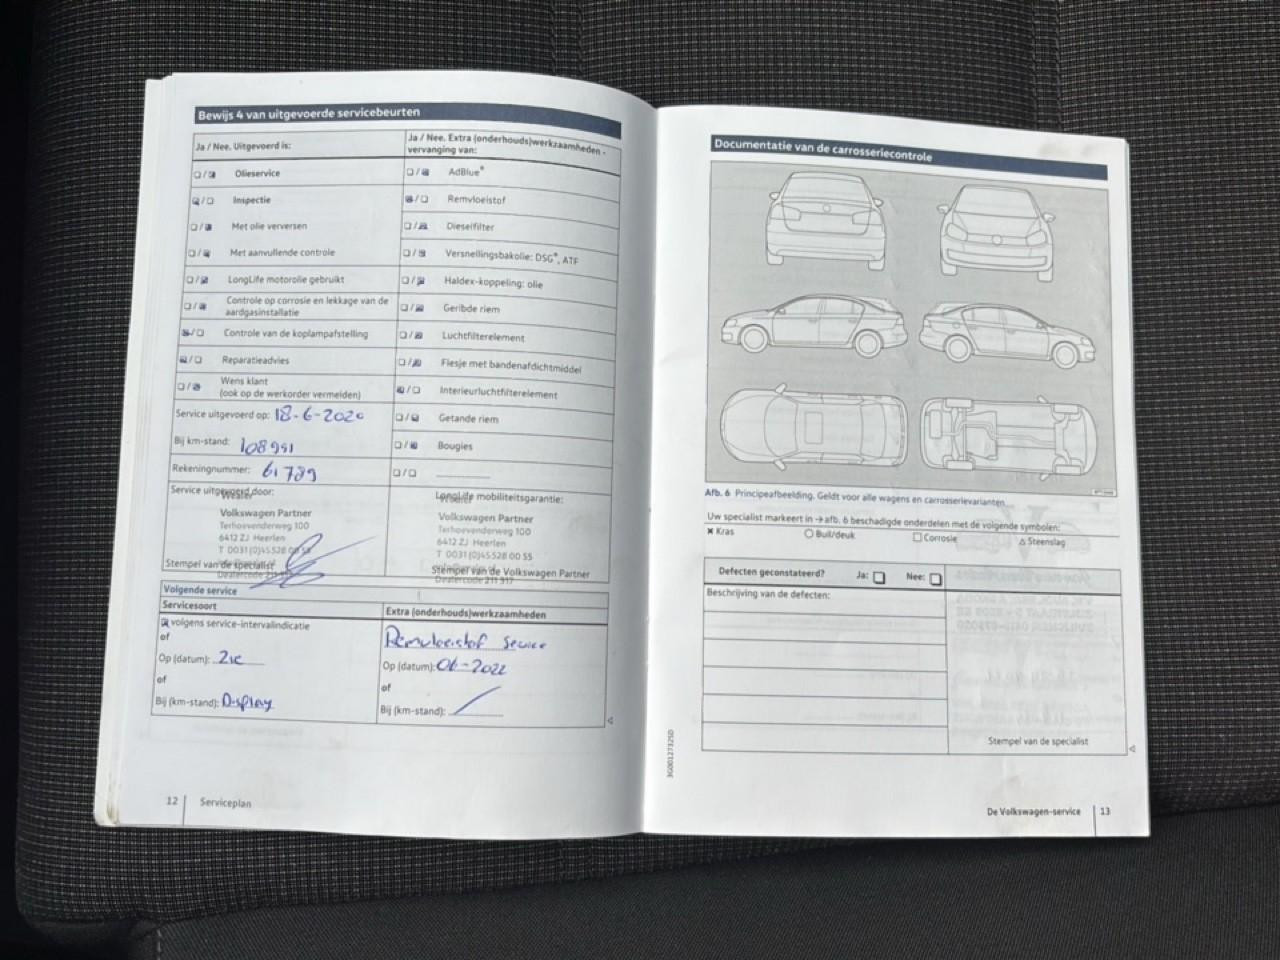 Bewijs 4 van uitgevoerde servicebeurten
Ja / Nee. Uitgevoerd is:
Olieservice
Inspectie
Met olie verversen
Met aanvullende controle
LongLife motorolie gebruikt
Controle op corrosie en lekkage van de
aardgasinstallatie
Controle van de koplampafstelling
Reparatieadvies
Wens klant
(ook op de werkorder vermelden)
Service uitgevoerd op: 18-6-2020
Bij km-stand: 108951
Rekeningnummer: 61789
Service uitgevoerd door:
Volkswagen Partner
Terhoevenderweg 100
6412 ZJ Heerlen
T 0031 (0)45 528 00 55
Stempel van de specialist
Ja / Nee. Extra (onderhouds)werkzaamheden -
vervanging van:
AdBlue®
Remvloeistof
Dieselfilter
Versnellingsbakolie: DSG®, ATF
Haldex-koppeling: olie
Geribde riem
Luchtfilterelement
Flesje met bandenafdichtmiddel
Interieurluchtfilterelement
Getande riem
Bougies
LongLife mobiliteitsgarantie:
Volkswagen Partner
Terhoevenderweg 100
6412 ZJ Heerlen
T 0031 (0)45 528 00 55
Stempel van de Volkswagen Partner
Dealercode 211 917
Volgende service
Servicesoort
volgens service-intervalindicatie
of
Op (datum): Zie
of
Bij (km-stand): Display
Extra (onderhouds)werkzaamheden
Remvloeistof Service
Op (datum): 06-2022
of
Bij (km-stand):
12 Serviceplan
Documentatie van de carrosseriecontrole
Afb. 6 Principeafbeelding. Geldt voor alle wagens en carrosserievarianten
Uw specialist markeert in → afb. 6 beschadigde onderdelen met de volgende symbolen:
Kras Buil/deuk Corrosie Steenslag
Defecten geconstateerd? Ja: Nee:
Beschrijving van de defecten:
Stempel van de specialist
3G0012732SD
De Volkswagen-service 13